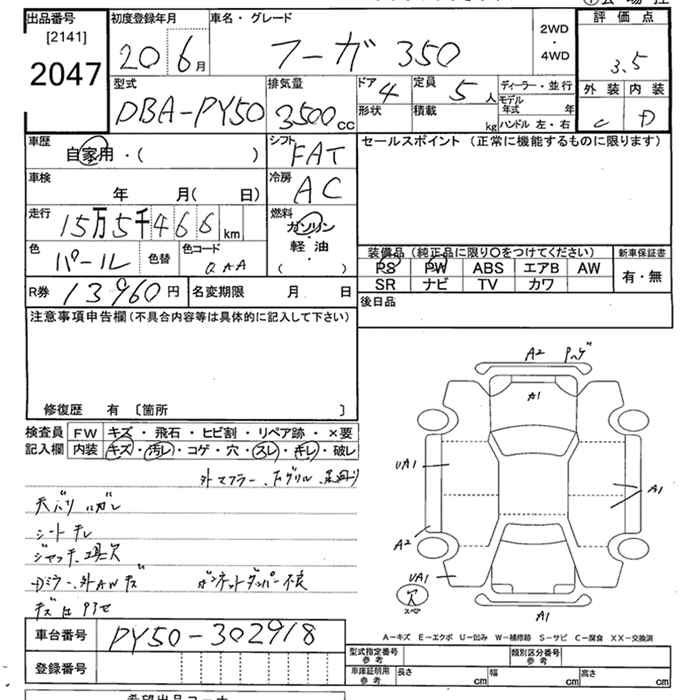 出品番号 初度登録年月 車名・グレード 2WD・4WD 評価点
[2141]
2047 20 6月 フーガ 350 3.5
型式 排気量 ドア 4 定員 5人 ディーラー・並行 外装 内装
DBA-PY50 3500cc 形状 積載 kg モデル年式 年 C D
ハンドル 左・右
車歴 シフト セールスポイント (正常に機能するものに限ります)
自家用・( ) FAT
車検 冷房
年 月( 日) AC
走行 燃料
15万5千466km ガソリン
軽油
( )
色 色替 色コード 装備品(純正品に限り○をつけてください) 新車保証書
パール QAA PS PW ABS エアB AW 有・無
SR ナビ TV カワ
R券 13960円 名変期限 月 日 後日品
注意事項申告欄(不具合内容等は具体的に記入して下さい)
修復歴 有 〔箇所 〕
検査員 FW キズ・飛石・ヒビ割・リペア跡・×要
記入欄 内装 キズ・汚レ・コゲ・穴・スレ・キレ・破レ
外マフラー、下グリル、足回り
天バリ ハガレ
シート キレ
ジャッキ、工具欠
ドアミラー、外AWキズ ボンネットダンパー不良
A2
A1
UA1
A1
A2
UA1
穴
A1
A-キズ E-エクボ U-凹み W-補修跡 S-サビ C-腐食 XX-交換済
車台番号 PY50-302918
型式指定番号 参考 類別区分番号 参考
登録番号 車庫証明用 参考 長さ cm 幅 cm 高さ cm
希望出品コーナー